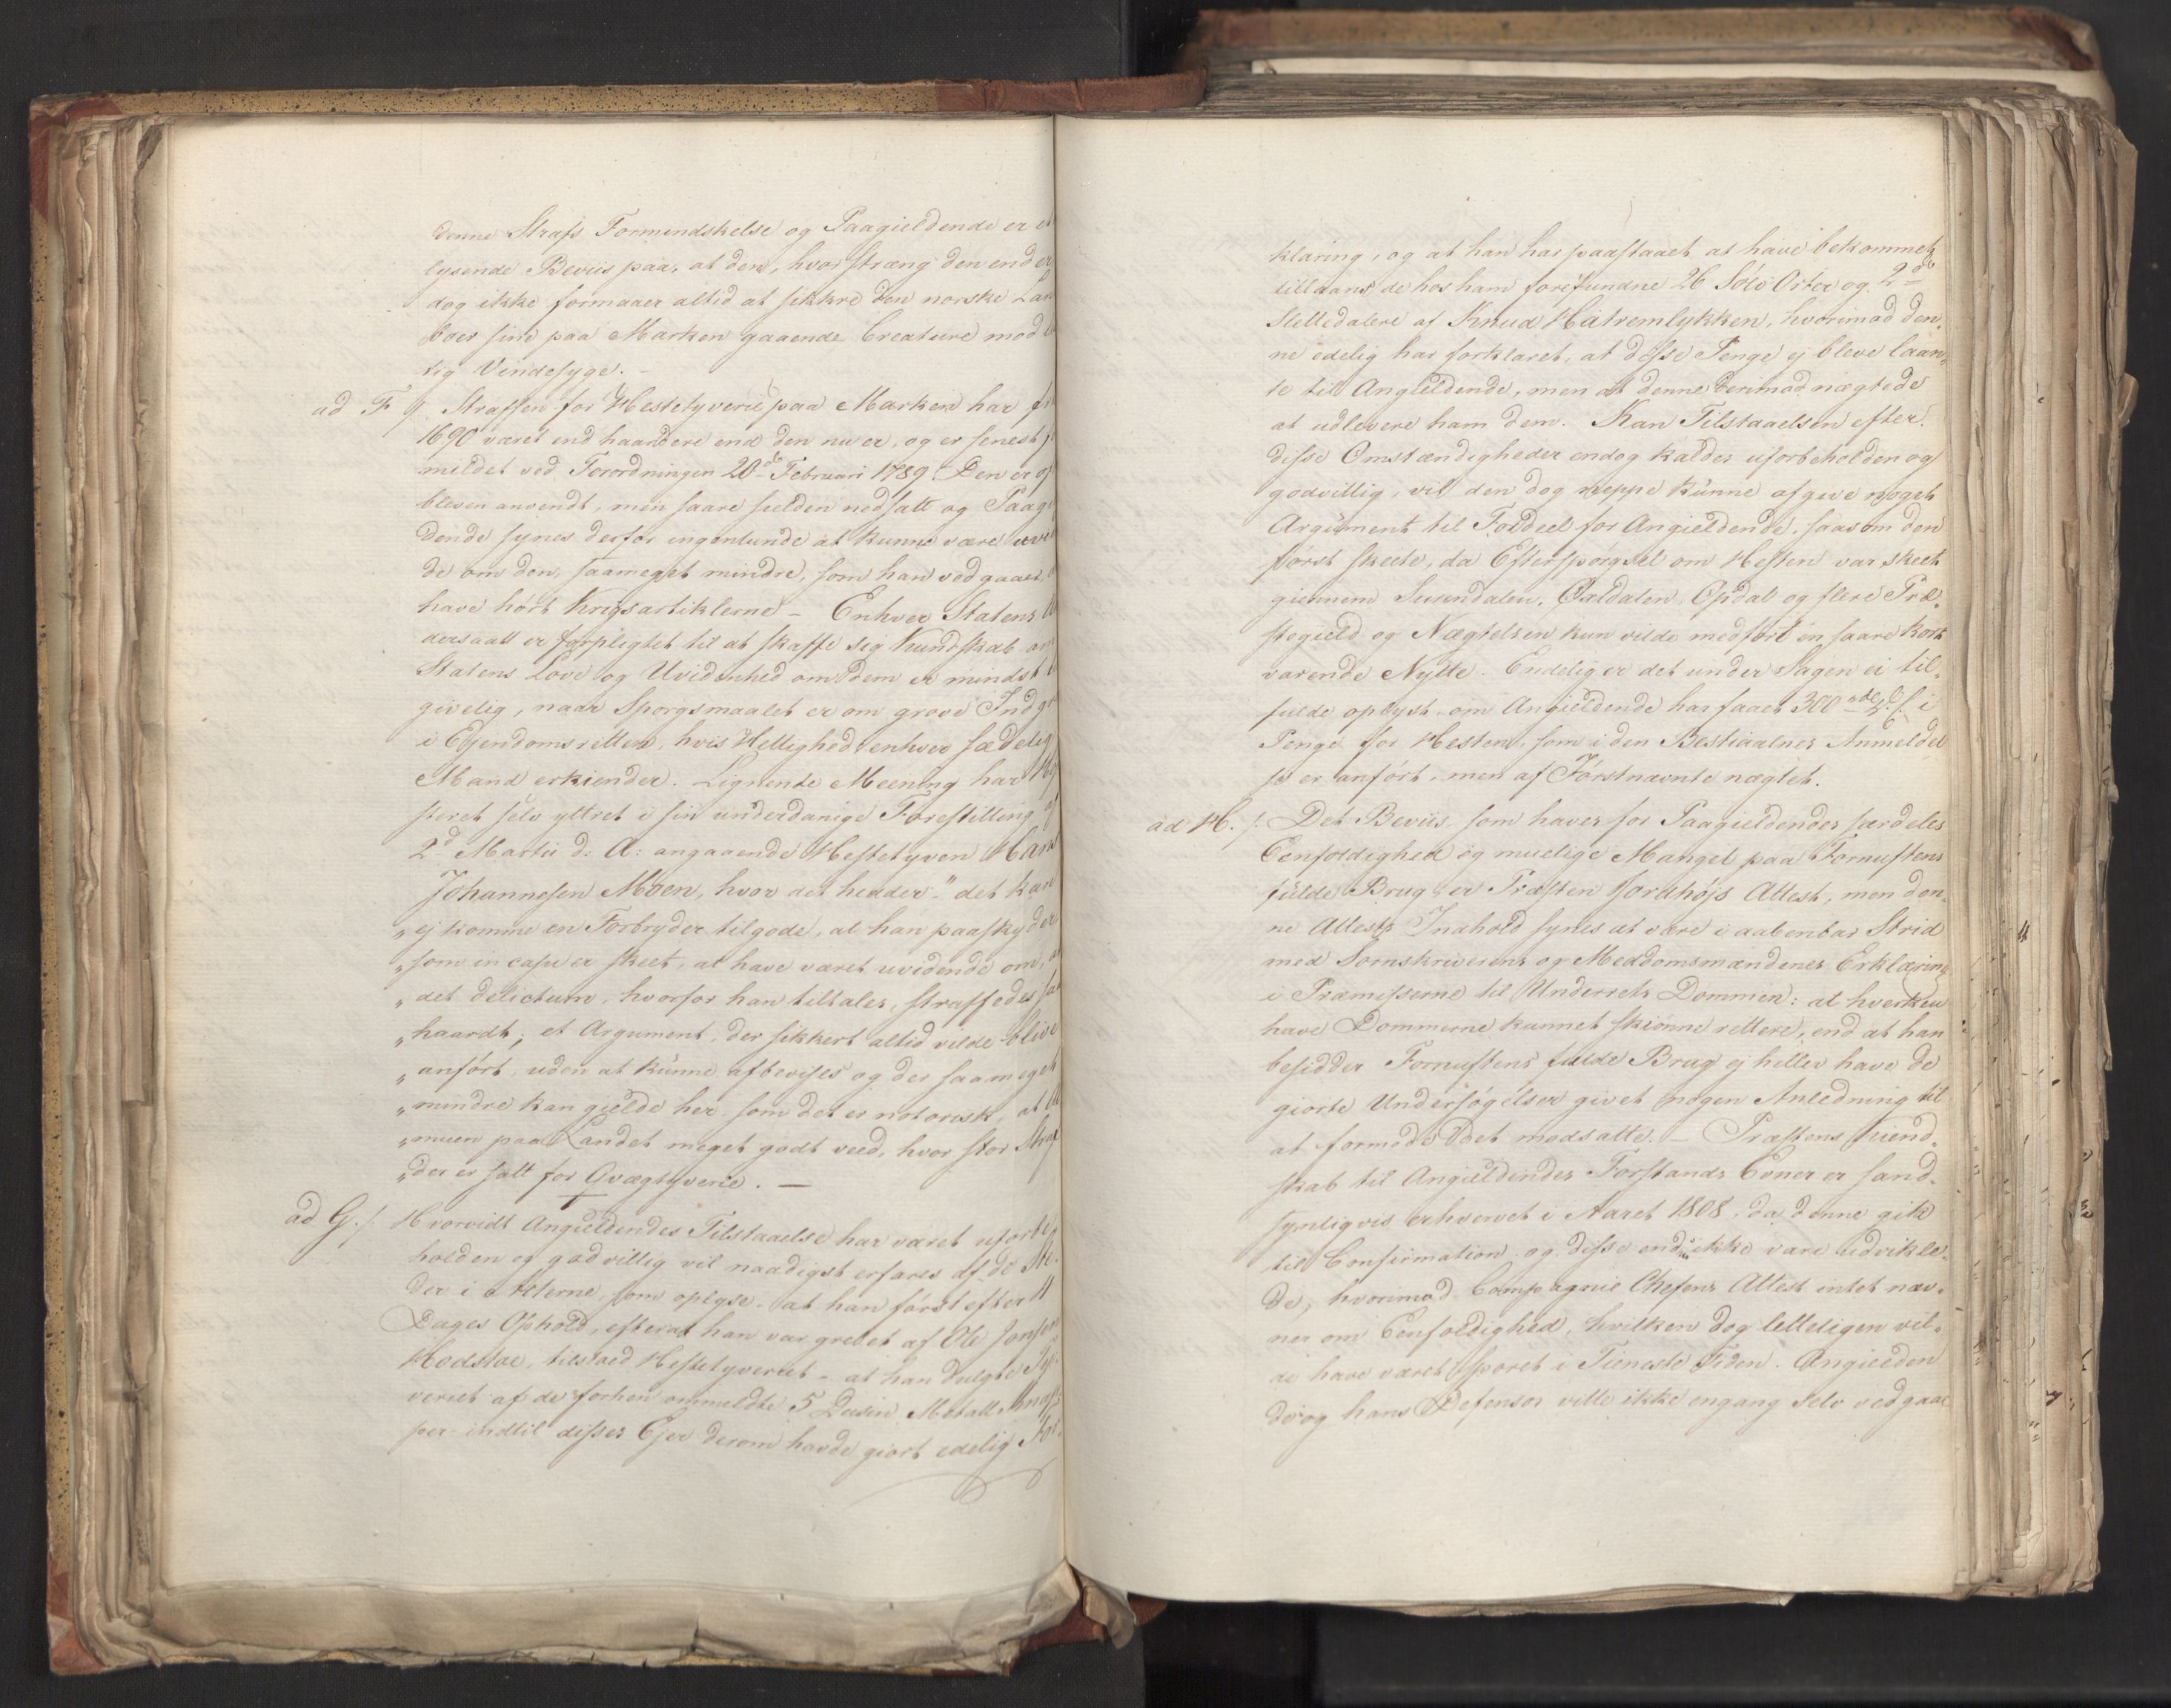 denne Strafs Formindskelse og Paagieldende er et
lysende Beviis paa, at den, hvor stræng den end er
dog ikke formaaer altid at sikkre den norske Lan
boer sine paa Marken gaaende Creature mod
tig Vindesyge. -
ad F 9. Straffen for Hestetyverie paa Marken har fra
1690 været end haardere end den nu er, og er senest for
mildet ved Forordningen 20de Februari 1789. Den er of
bleven anvendt, men saare sielden nedsatt og Paagi
dende synes derfor ingenlunde at kunne være uvi
de om den, saameget mindre, som han vedgaaer,
have hørt Krigsartiklerne - Enhver Statens
dersaatt er forpligtet til at skaffe sig Kundskab om
Statens Love og Uvidenhed om dem er mindst
givelig, naar Spørgsmaalet er om grove Indgr
i Ejendomsretten, hvis Hellighed enhver sædelig
Mand erkiender. Lignende Meening har Høj
steret selv yttret i sin underdanige Forestilling af
2d Martii d: A: angaaende Hestetyven Hans
Johannesen Moen, hvor det hedder - "det kan
"ej komme en Forbryder tilgode, at han paaskyder
"som in casu er skeet, at have været uvidende om, at
"det delictum, hvorfor han tiltales, straffedes saa
"haardt; et Argument, der sikkert altid vilde blive
"anført, uden at kunne afbevises og der saameget
"mindre kan gielde her, som det er notorisk, at Al
"muen paa Landet meget godt veed, hvor stor Straf
"der er satt for Qvægtyverie. -
ad G. /. Hvorvidt Angieldendes Tilstaaelse har været uforbe
holden og godvillig vil naadigst erfares af de Ste-
der i Akterne, som oplyse - at han først efter 11
Dages Ophold, efterat han var grebet af Ole Jonsen
Rodstoe, tilstaaed Hestetyveriet - at han dulgte Ty-
veriet af de forhen ommeldte 5 Dusin Metall Knap-
per indtil disses Ejer derom havde giort edelig For-
klaring, og at han har paastaaet at have bekommet
tillaans de hos ham forefundne 26 Sølv Orter og 2de
Slettedalere af Knud Hatremlykken, hvorimod den-
ne edelig har forklaret, at disse Penge ej bleve laan-
te til Angieldende, men at denne derimod nægtede
at udlevere ham dem. Kan Tilstaaelsen efter
disse Omstændigheder endog kaldes uforbeholden og
godvillig, vil den dog neppe kunne afgive noget
Argument til Fordeel for Angieldende, saasom den
først skeete, da Efterspørgsel om Hesten var skeet
giennem Surendalen, Opdal og flere Præ-
stegield og Nægtelsen kun vilde medført en saare kort
varende Nytte. Endelig er det under Sagen ei til-
fulde oplyst om Angieldende har faaet 300 rdlr i
Penge for Hesten, som i den Bestiaalnes Anmeldel
se er anført, men af Førstnævnte nægtet.
ad H. /. Det Beviis som haves for Paagieldendes særdeles
Eenfoldighed og muelige Mangel paa Fornuftens
fulde Brug er Præsten Jordhøjs Attest, men den-
ne Attests Indhold synes at være i aabenbar Strid
med Sorenskriverens og Meddomsmændenes Erklæring
i Præmisserne til Underrets Dommen: at hverken
have Dommerne kunnet skiønne rettere, end at han
besidder Fornuftens fulde Brug ej heller have de
giorte Undersøgelser givet nogen Anledning til
at formode det modsatte. - Præstens Kiend-
skab til Angieldendes Forstands Evner er sand-
synligvis erhvervet i Aaret 1808, da denne gik
til Confirmation og disse endnu ikke vare udvikle-
de, hvorimod Compagnie Chefens Attest intet næv-
ner om Eenfoldighed, hvilken dog letteligen vil-
de have været sporet i Tieneste Tiden. Angielden
de og hans Defensor ville ikke engang selv vedgaae